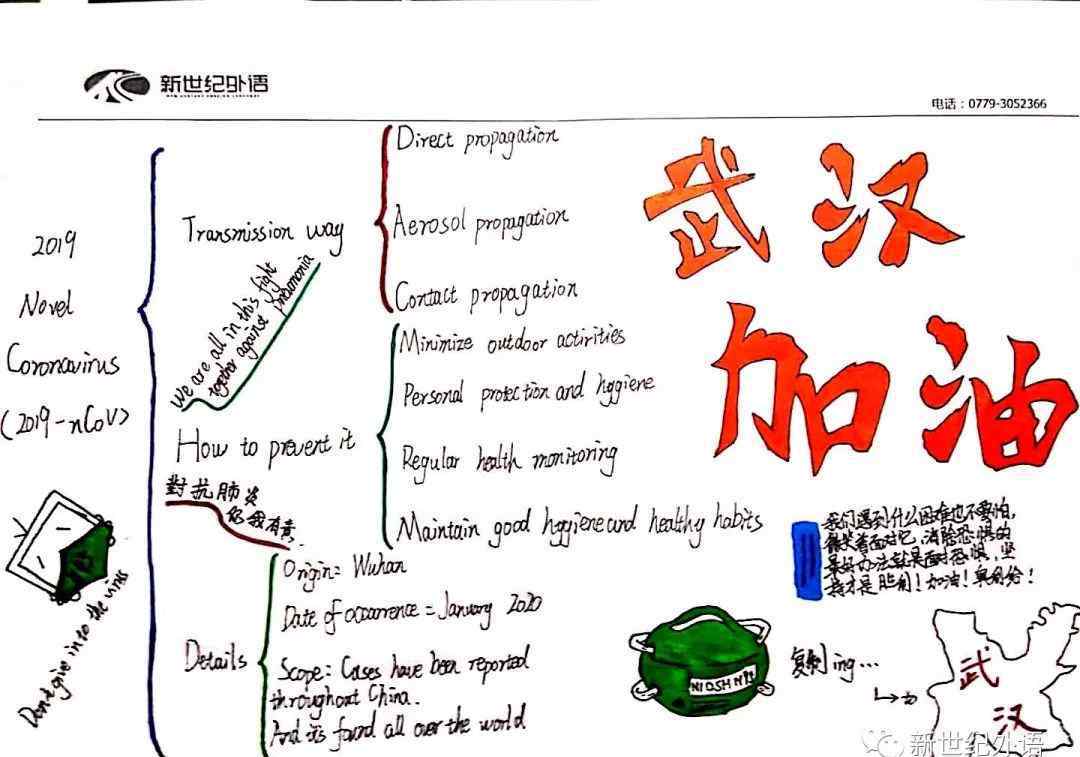 新世纪外语
电话：0779-3052366
2019
Novel
Coronavirus
(2019-nCoV)
Transmission way
Direct propagation
Aerosol propagation
Contact propagation
We are all in this fight
together against pneumonia
How to prevent it
Minimize outdoor activities
Personal protection and hygiene
Regular health monitoring
Maintain good hygiene and healthy habits
對抗肺炎
你我有责.
Details
Origin= Wuhan
Date of occurrence = January 2020
Scope= Cases have been reported
throughout China.
And it's found all over the world
Don't give in to the virus
武汉
加油
我们遇到什么困难也不要怕,
微笑着面对它,消除恐惧的
最好办法就是面对恐惧,坚
持才是胜利!加油!奥利给!
NIOSH N95
复制ing...
武
汉
新世纪外语